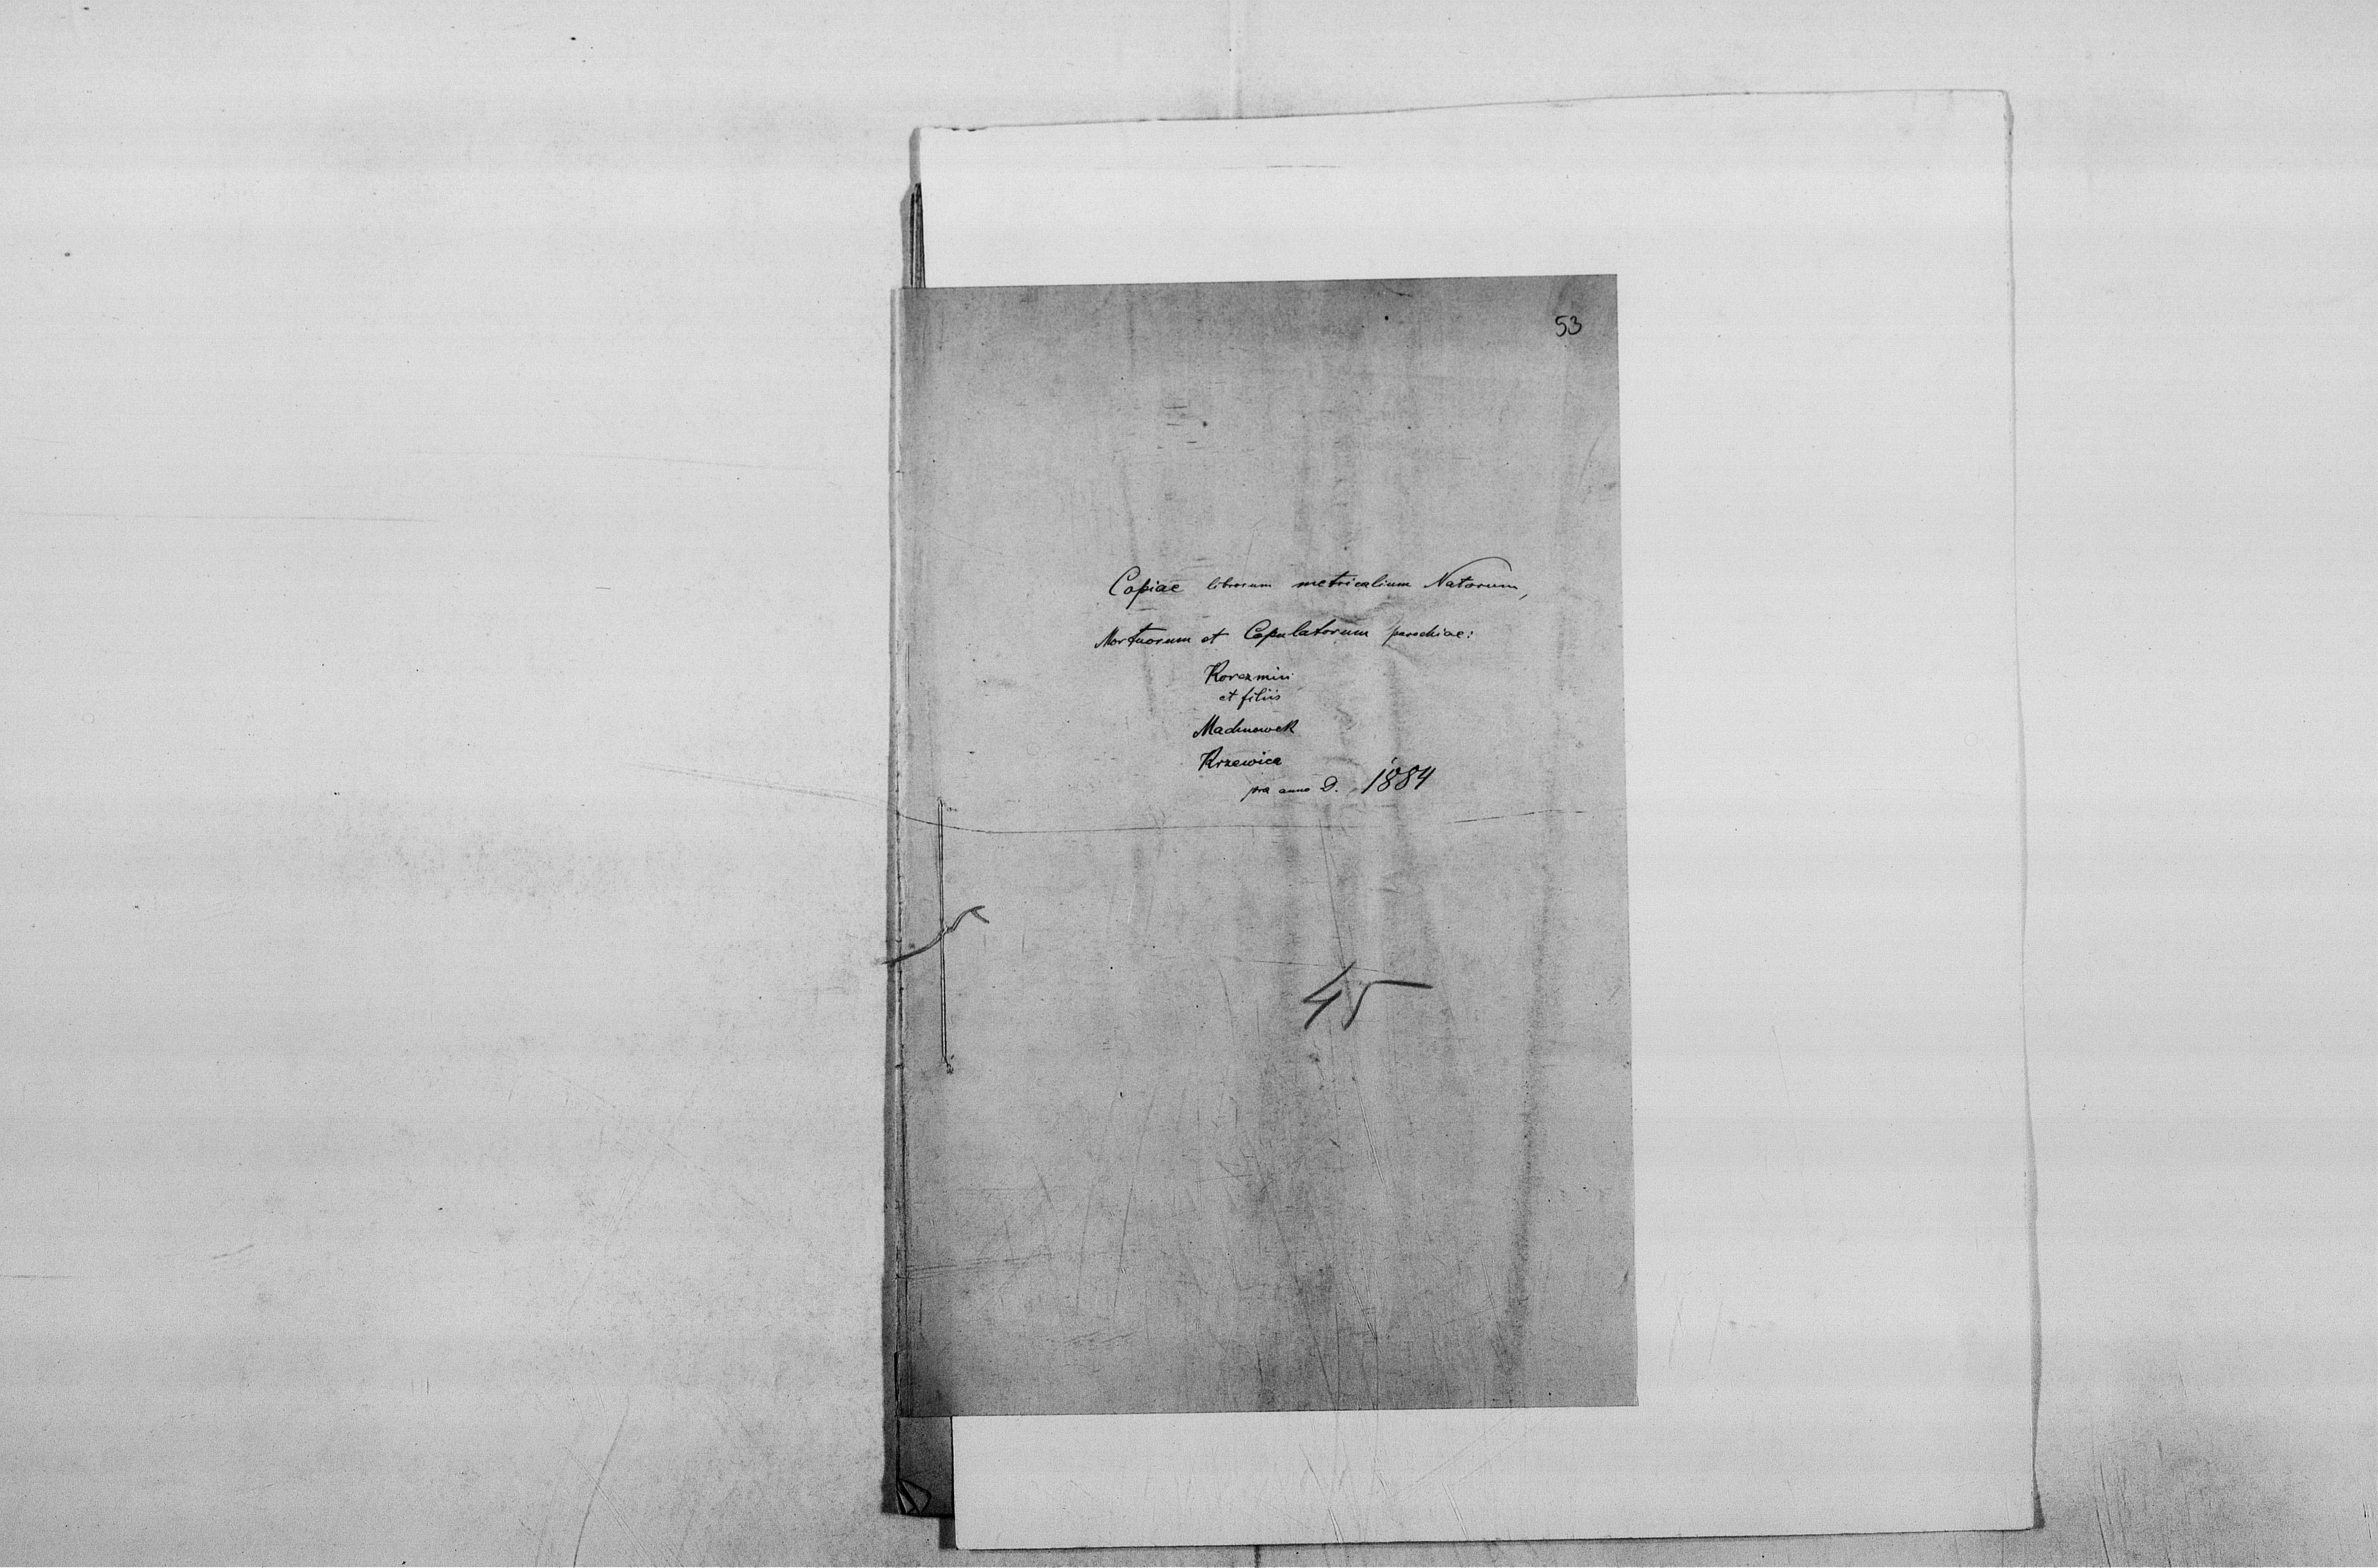 53
Copiae librorum metricalium Natorum,
Mortuorum et Copulatorum parochiae:
Korczmin
et filiis
Machnowek
Krzewica
pro anno D. 1884
45